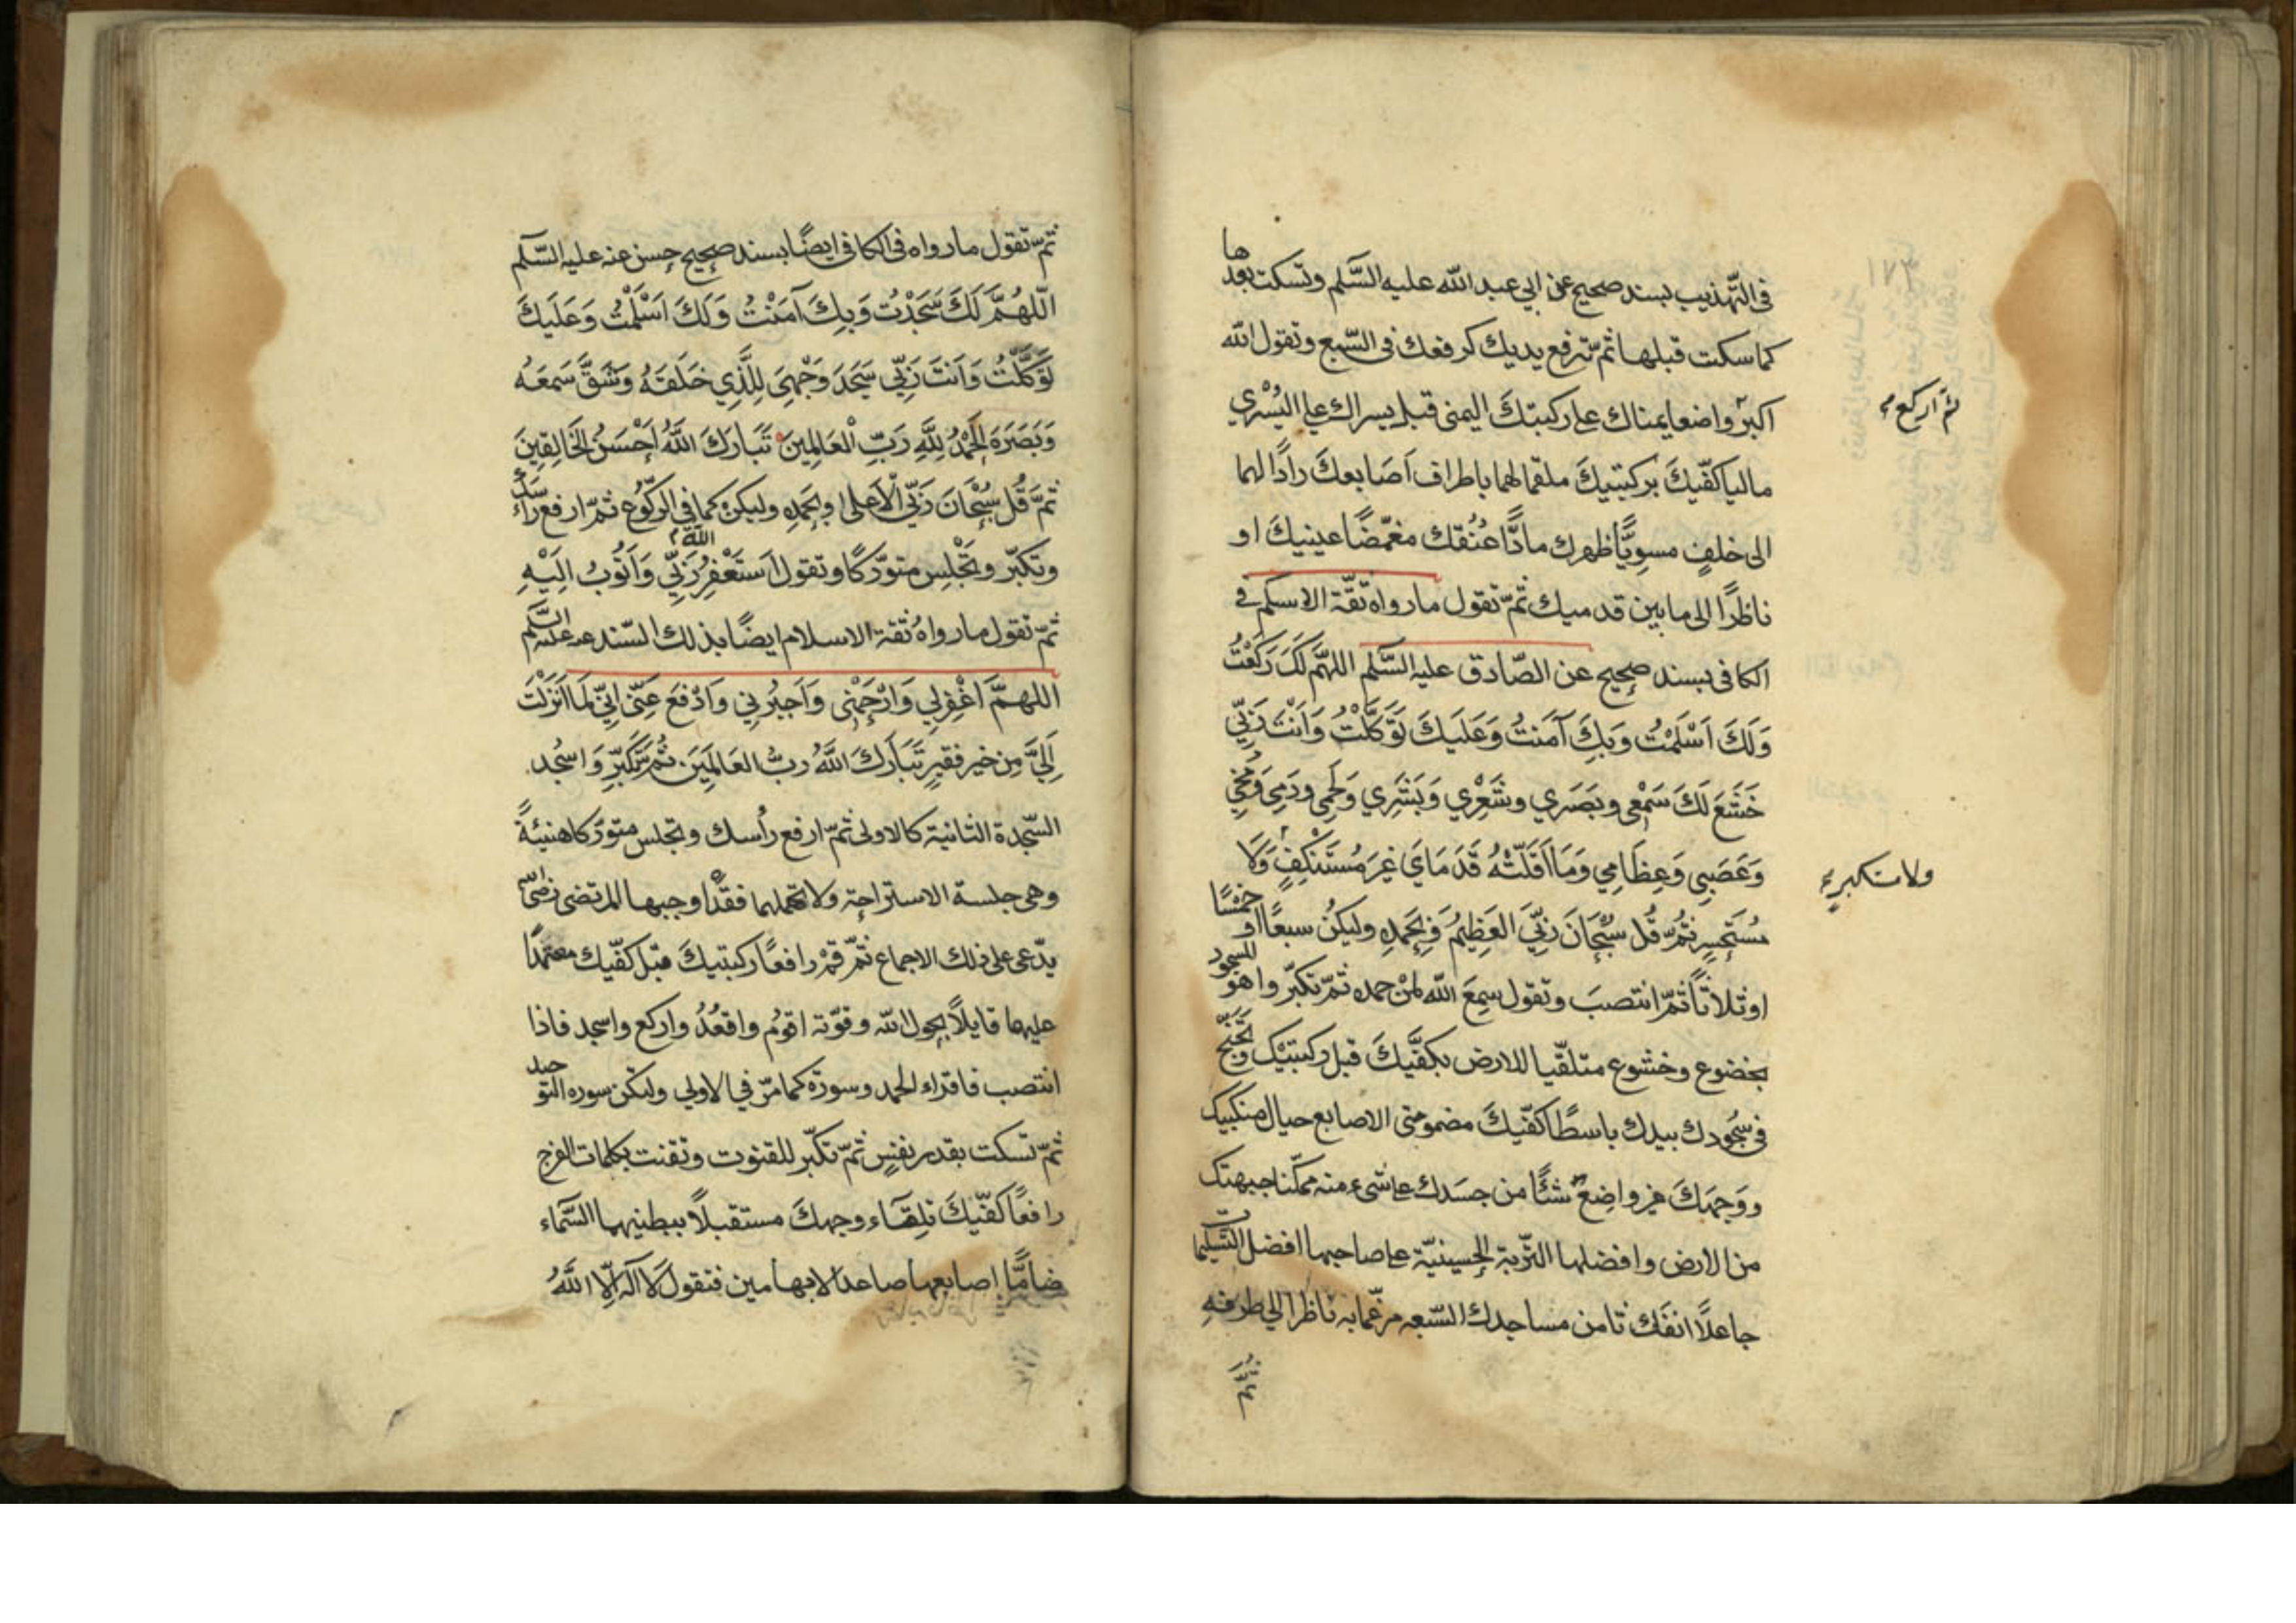 في التهذيب بسند صحيح عن ابي عبد الله عليه السّلم وتسكت بعدها
كما سكت قبلها ثمّ ترفع يديك كرفعك في السّبع وتقول الله
اكبر واضعا يمناك على ركبتك اليمنى قبل يسراك على اليُسْرى
ثمّ اركع
ماليا كفّيكَ بركبتيكَ ملقما لهما باطراف اَصَابعكَ رادًا لهما
الى خلفٍ مسوِيًّا ظهرك مادًّا عُنُقك مغمّضًا عينيكَ او
ناظرًا الى ما بين قدميك ثمّ تقول ما رواه ثقّة الاسلم في
الكافى بسند صحيح عن الصّادق عليه السَّلم اللهمَّ لَكَ رَكَعْتُ
وَلَكَ اَسْلَمْتُ وَبِكَ آمَنتُ وَعَلَيكَ تَوَكَّلْتُ وَاَنْتَ رَبِّي
خَشَعَ لَكَ سَمْعي وبَصَري وشَعْرِي وَبَشَرِي وَلَحْمِي ودَمِي وَمُخِّي
وَعَصَبِي وَعِظَامِي وَمَا اَقَلَّتْهُ قَدَمَايَ غيرَ مُسْتَنْكِفٍ وَلَا
ولا مستكبر
مُسْتَحْسِرٍ ثُمَّ قُل سُبْحَانَ رَبِّيَ العَظِيمُ وَبِحَمْدِهِ وليكنُ سبعًا او خمسًا
او ثلاثًا ثمّ انتصبَ وتقول سِمعَ الله لمنْ حمده ثمّ تكبّر واهو للسجود
بخضوع وخشوع متلقّيا للارض بكفَّيكَ قبل ركبتيْك وتجنّح
في سُجُودك بيدك باسطًا كفّيكَ مضمومتى الاصابع حيال منكبيك
ووَجهَكَ غير واضِعٍ شئًا من جسَدك على شىء منه ممكّنا جبهتك
من الارض وافضلها التّربة الحسينيّة على صاحبها افضل التّسليمات
جاعلًا انفَك ثامن مساجدك السّبعه مرغما به ناظرا الي طرفه
ثمّ تقول ما رواه في الكافي ايضًا بسند صحيح حسن عنه عليه السَّلم
اللّهُمَّ لَكَ سَجَدْتُ وَبِكَ آمَنْتُ وَلَكَ اَسْلَمْتُ وَعَلَيكَ
تَوَكَّلْتُ وَاَنتَ رَبِّي سَجَدَ وَجْهِيَ لِلَّذِي خَلَقَهُ وَشَقَّ سَمعَهُ
وَبَصَرَهَ الحَمْدُ لِلَّهِ رَبِّ الْعَالَمِينَ تَبَارَكَ اللَّهُ اَحْسَنُ الخَالِقِينَ
ثمَّ قُل سُبْحَانَ رَبِّي الْاَعلى وبحَمدِهِ وليكنْ كما في الركُوع ثمّ ارفع رأسك
وتكبّر وتَجْلِس متورّكًا وتقول اَستَغْفِرُ اللهَ رَبِّي وَاَتُوبُ اِلَيْهِ
ثمّ تقول ما رواهُ ثقة الاسلام ايضًا بذلك السّند عنه عليه السَّلم
اللهمَّ اغْفِرلِي وَارْحَمْنِي وَاَجِبُرنِي وَادْفَعَ عَنّي اِنّي لِمَا اَنْزَلْتَ
اِلَيَّ مِن خير فقيرٍ تَبَارَكَ اللَّهُ ربُّ العَالَمِينَ ثُمّ تكبّرِ وَاسْجُد
السّجدة الثانية كالاولى ثمّ ارفع رأسك وتجلس متورّكا هنيئةً
وهي جلسة الاستراحة ولا تهملها فقد اوجبها المرتضى رضى
يدّعى على ذلك الاجماع ثمّ قُمْ رافعًا ركبتيكَ قبل كفّيك معتمدًا
عليهما قايلًا بحول الله وقوّته اقومُ واقعُدُ واركع واسجد فاذا
انتصب فاقراء الحمد وسورة كما مرّ في الاولي ولتكن سوره التوحيد
ثمّ تسكت بقدر نفسٍ ثمّ تكبّر للقنوت وتقنت بكلمات الفرج
رافعًا كفّيكَ تلِقَاء وجهكَ مستقبلًا ببطنيهما السَّماء
ضامًّا اصابعها صاعدا لابهامين فتقول لَا اله اِلّا اللَّهُ